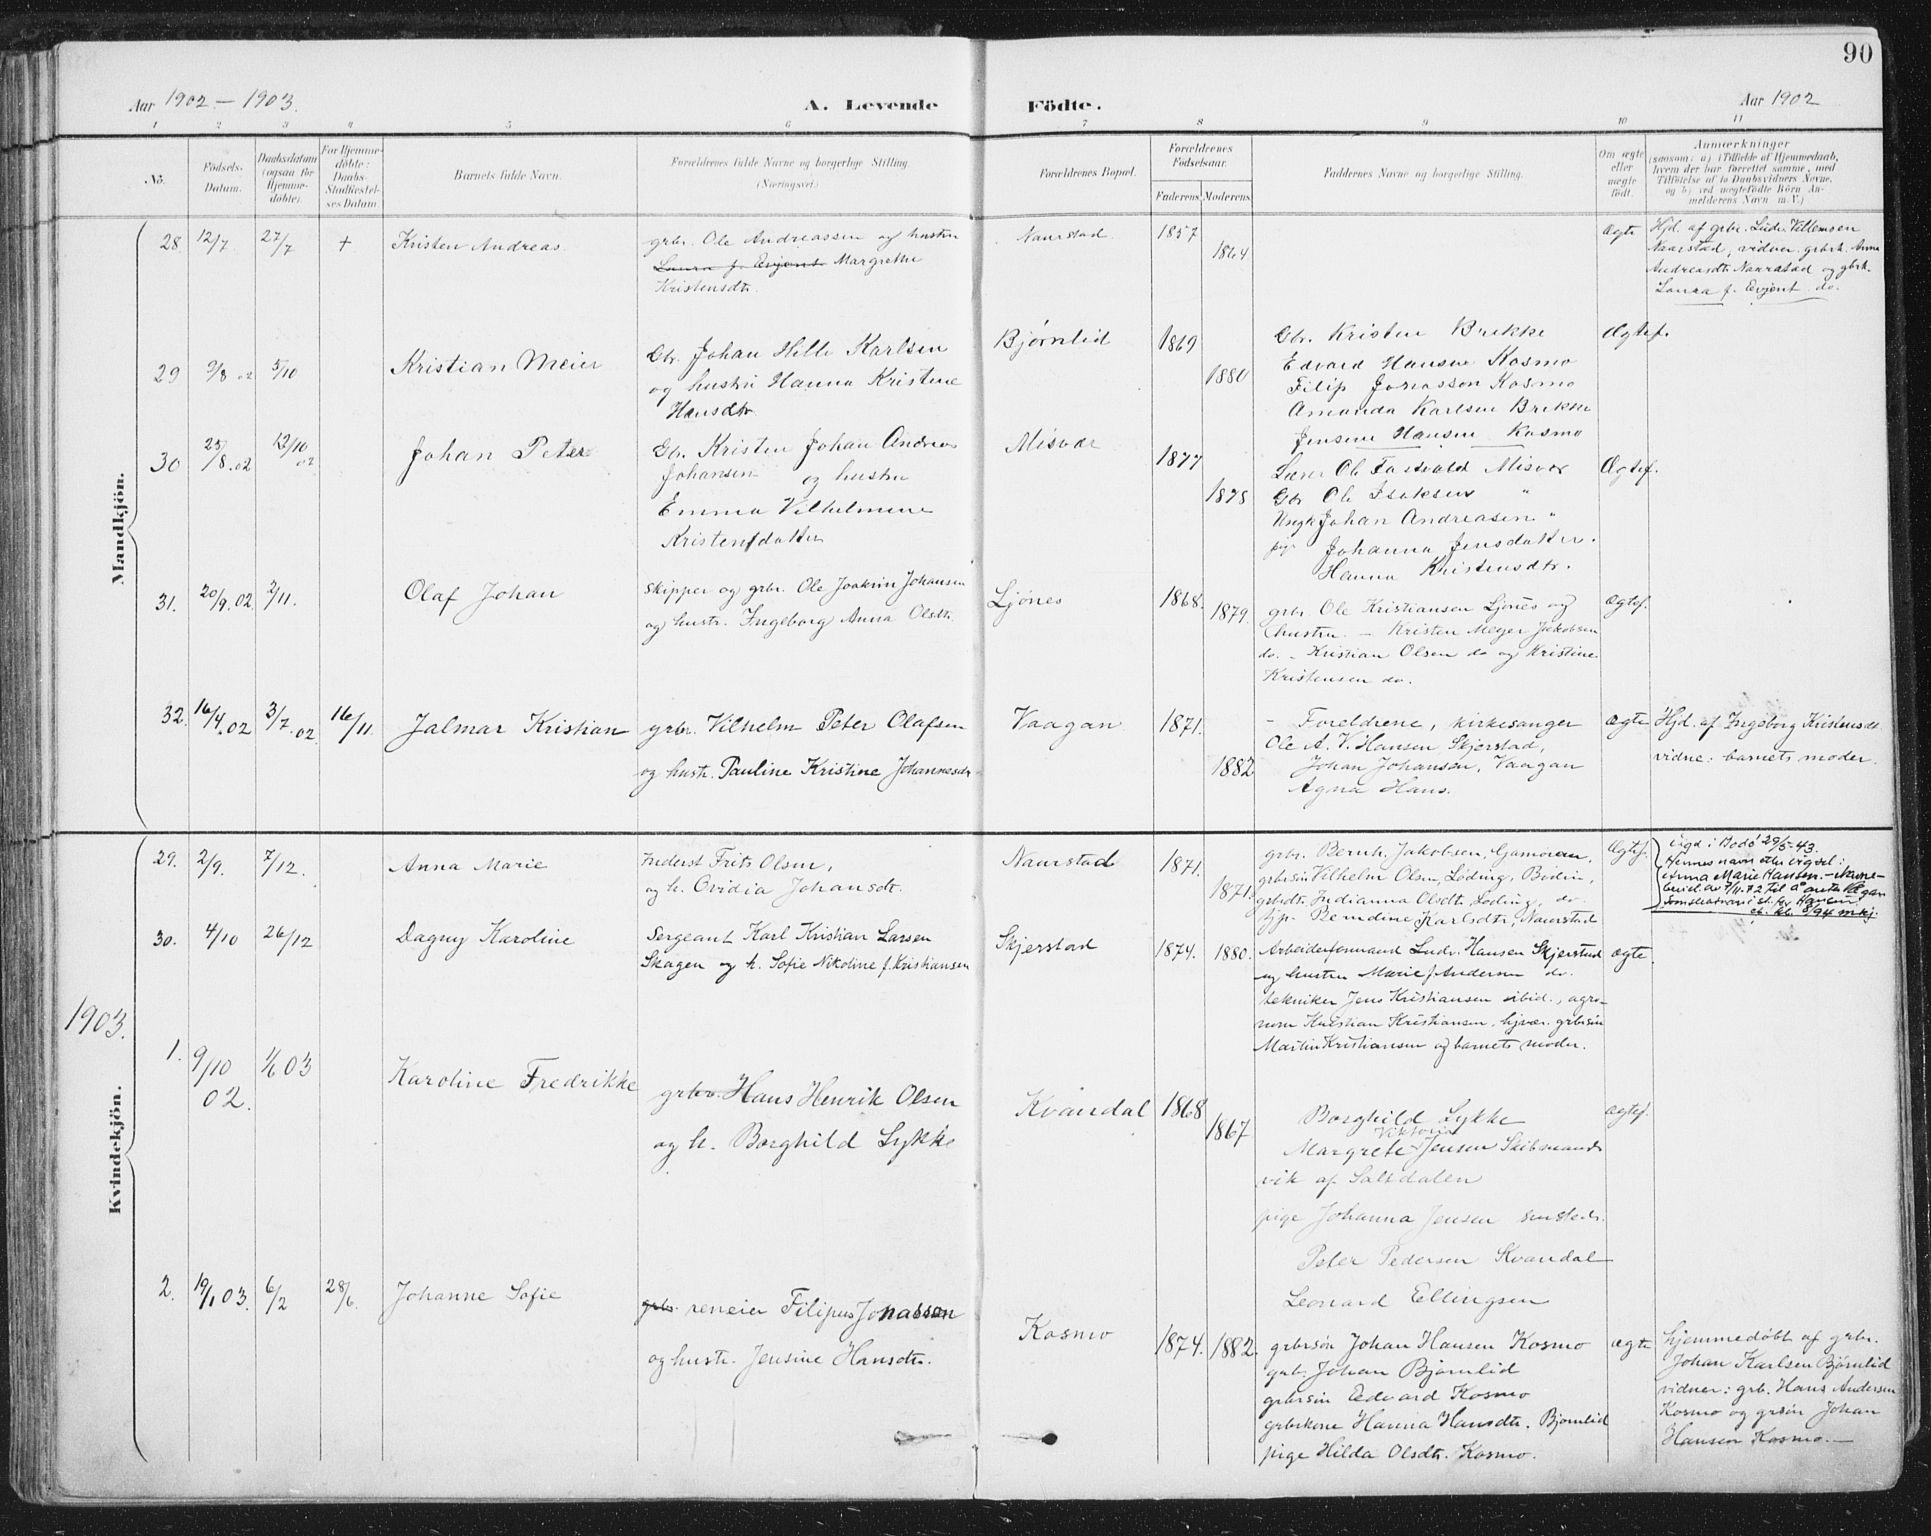 90
Aar 1902 - 1903.
A. Levende
Födte.
Aar 1902
1 2 3 4 5 6 7 8 9 10 11
No.
Födsels-
Datum.
Daabsdatum
(ogsaa for
Hjemme-
döbte).
For Hjemme-
döbte:
Daabs-
Stadfæstel-
ses Datum
Barnets fulde Navn.
Forældrenes fulde Navne og borgerlige Stilling.
(Næringsvei.)
Forældrenes Bopæl.
Forældrenes
Födselsaar.
Faderens
Moderens
Faddernes Navne og borgerlige Stilling.
Om ægte
eller
uægte
födt.
Anmærkninger
(saasom: a) i Tilfælde af Hjemmedaab,
hvem der har forrettet samme, med
Tilföielse af to Daabsvidners Navne,
og b) ved uægtefödte Börn An-
melderens Navn m. V.)
Mandkjön.
28 12/7. 27/7 + Kristen Andreas.
grbr. Ole Andreassen og hustru
Laura f. Evjent Margrethe
Kristensdtr.
Naurstad. 1857 1864
Ægte
Hjd. af grbr. Ludv. Villumsen
Naurstad, vidner grbrk. Anna
Andreasdtr Naurstad og gbrk.
Laura f. Evjent do.
29 9/8 02 5/10 Kristian Meier
Gbr. Johan Hille Karlsen
og hustru Hanna Kristine
Hansdtr
Bjørnlid 1869 1880
Gbr. Kristen Brekke
Edvard Hansen Kosmo
Filip Jonasson Kosmo
Amanda Karlsen Brekke
Jensine Hansen Kosmo
Ægtef.
30 25/8.02 12/10 02 Johan Peter
Gbr. Kristen Johan Andreas
Johansen og hustru
Emma Vilhelmine
Kristensdatter
Misvær 1877 1878
Lærer Ole Tostvold Misvær
Gbr Ole Isaksen "
Ungk Johan Andreasen "
pige Johanna Jensdatter.
Hanna Kristensdtr.
Ægtef.
31. 20/9.02. 2/11. Olaf Johan
skipper og grbr. Ole Joakim Johansen
og hustr. Ingeborg Anna Olsdtr.
Ljönes 1868. 1879.
grbr. Ole Kristiansen Ljönes og
hustru. - Kristen Meyer Jakobsen
do. - Kristian Olsen do og Kristine
Kristensen do.
ægtef.
32. 16/4.02 3/7.02. 16/11. Jalmar Kristian
grbr. Vilhelm Peter Olafsen
og hustr. Pauline Kristine Johannesdr
Vaagan 1871. 1882
- Foreldrene, kirkesanger
Ole A. V. Hansen, Skjerstad,
Johan Johansen, Vaagan
Agna Hans.
ægte
Hjd. af Ingeborg Kristensdt.
vidne: barnets moder.
Kvindekjön.
29. 2/9. 7/12. Anna Marie
Inderst Frits Olsen,
og h. Ovidia Johansdtr.
Naurstad 1871. 1871.
grbr. Bernh. Jakobsen, Gamoren,
grbrsön Vilhelm Olsen, Löding, Bodin,
grbrdtr. Indianna Olsdtr. Löding, do.
tjp. Berndine Karlsdtr. Naurstad
Ægtef.
Vigd i Bodö 29/5-43.
Hennes navn etter vigsel:
Anna Marie Hansen. - Navne-
30. 4/10 26/12 Dagny Karoline
Sergeant Karl Kristian Larsen
Skagen og h. Sofie Nikoline f. Kristiansen
Skjerstad 1874. 1880.
Arbeidsformand Ludv. Hansen Skjerstad
og hustru Marie f. Andersen do.
tekniker Jens Kristiansen ibid., agro-
nom Kristian Kristiansen, grbrsön
Martin Kristiansen og barnets moder.
ægte.
1903.
1. 9/10 02. 1/1 03 Karoline Fredrikke
grbr. Hans Henrik Olsen
og h. Borghild Lykke
Kvandal 1868 1867
Borghild Lykke
Margrete Viktoria Jensen Skibmands
vik af Saltdalen
pige Johanna Jensen
Peter Pedersen Kvandal
Leonard Ellingsen
ægtef.
2. 19/1 03. 6/2 28/6. Johanne Sofie
grbr. reneier Filipus Jonasson
og hustr. Jensine Hansdtr.
Kosmo 1874. 1882.
grbrsön Johan Hansen Kosmo
grbr. Johan Bjørnlid
grbrsön Edvard Kosmo
grbrkone Hanna Hansdtr. Bjørnlid
pige Hilda Olsdtr. Kosmo.
ægte
hjemmedøbt af grbr.
Johan Karlsen Bjørnlid
vidner: grb. Hans Andersen
Kosmo og grsön Johan
Hansen Kosmo.